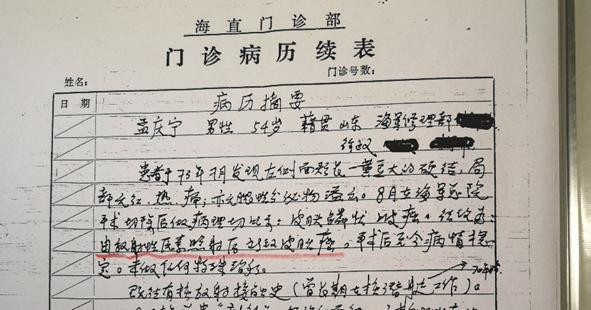 海直门诊部
门诊病历续表
姓名: 门诊号数:
日期 病历摘要
孟庆宁 男性 54岁 籍贯山东 海军修理部
患者于73年7月发现左侧面部长一黄豆大的硬结,局
部无红、热、痛,亦无脓性分泌物溢出。8月在海军医院
手术切除后做病理切片为:皮肤鳞状上皮癌。结论为:
由放射性质照射后引致皮肤癌。手术后至今病情稳
定。未做任何特殊治疗。
70年
既往有核放射接触史(曾长期在核潜艇工作)。